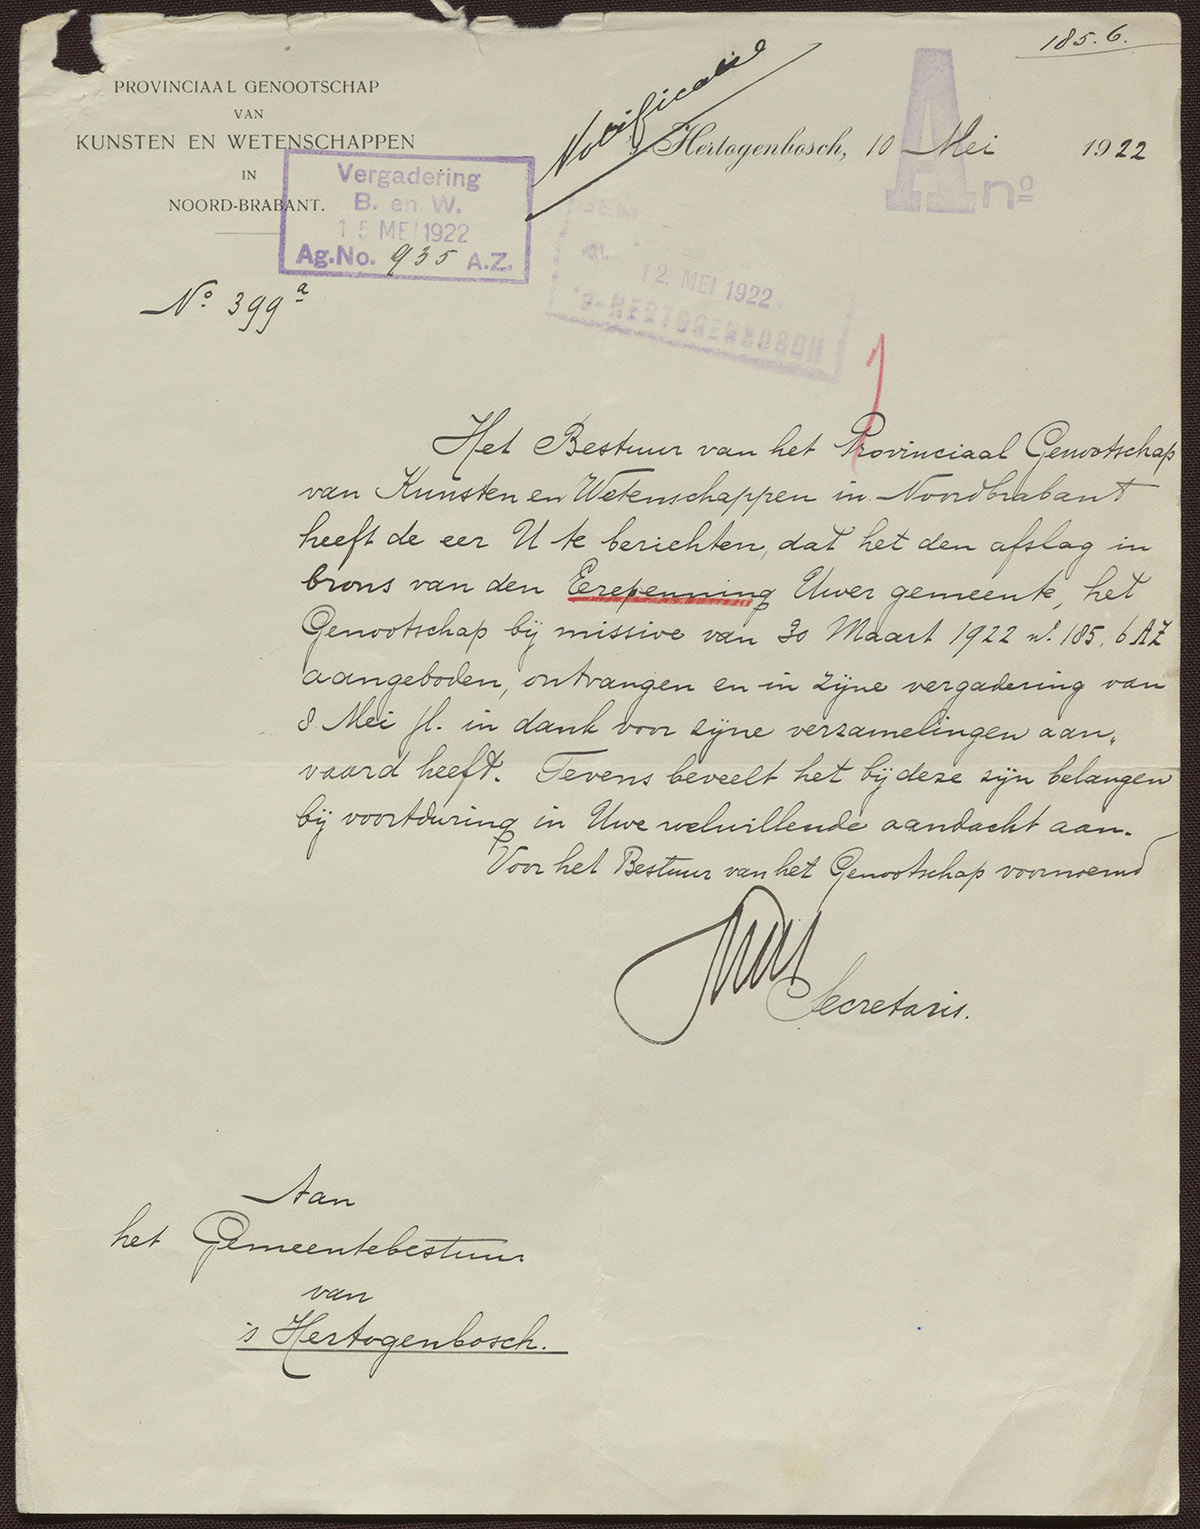 185.6.
PROVINCIAAL GENOOTSCHAP
VAN
KUNSTEN EN WETENSCHAPPEN
IN
NOORD-BRABANT.
Notificatie
's Hertogenbosch, 10 Mei 1922
A no
Vergadering
B. en W.
15 MEI 1922
Ag.No. 935 A.Z.
12. MEI 1922
's-HERTOGENBOSCH
No 399a
Het Bestuur van het Provinciaal Genootschap
van Kunsten en Wetenschappen in Noordbrabant
heeft de eer U te berichten, dat het den afslag in
brons van den Eerepenning Uwer gemeente, het
Genootschap bij missive van 30 Maart 1922 no. 185.6 AZ
aangeboden, ontvangen en in zijne vergadering van
8 Mei jl. in dank voor zijne verzamelingen aan-
vaard heeft. Tevens beveelt het bij deze zijn belangen
bij voortduring in Uwe welwillende aandacht aan.
Voor het Bestuur van het Genootschap voornoemd
Secretaris.
Aan
het Gemeentebestuur
van
's Hertogenbosch.